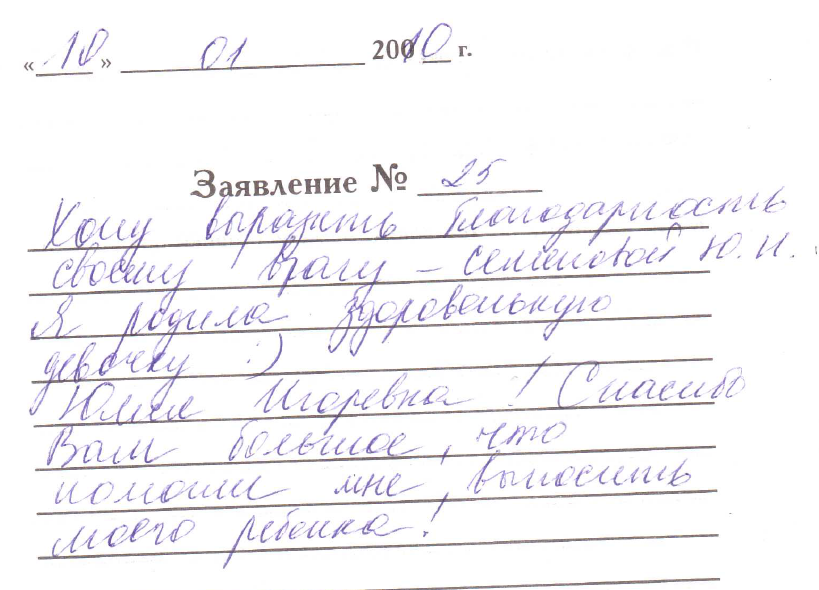 « 18 » 01 200 10 г.
Заявление № 25
Хочу выразить благодарность
своему врачу – Семеновой Ю. И.
Я родила здоровенькую
девочку :)
Юлия Игоревна! Спасибо
Вам большое, что
помогли мне выносить
моего ребенка!